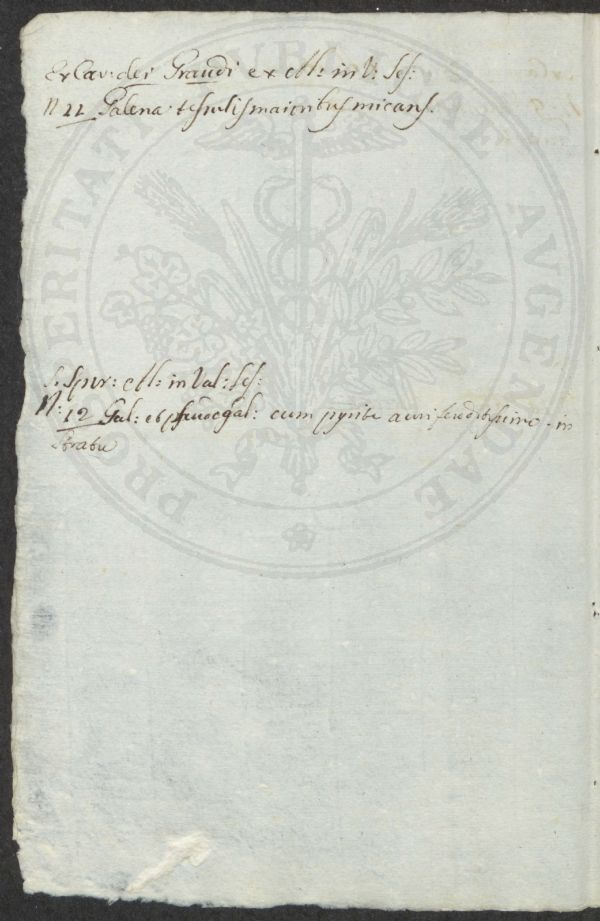 Ex Cav: dei Graudi ex M: in V: Ses:
N 11 Galena teſsulis maioribus micans.
Spur: M: in Val: Ses:
N: 12 Gal: et pſeudogal: cum pyrite aurifero ditiſsimo in
Strata
PROSPERITATI PUBLICAE AVGENDAE